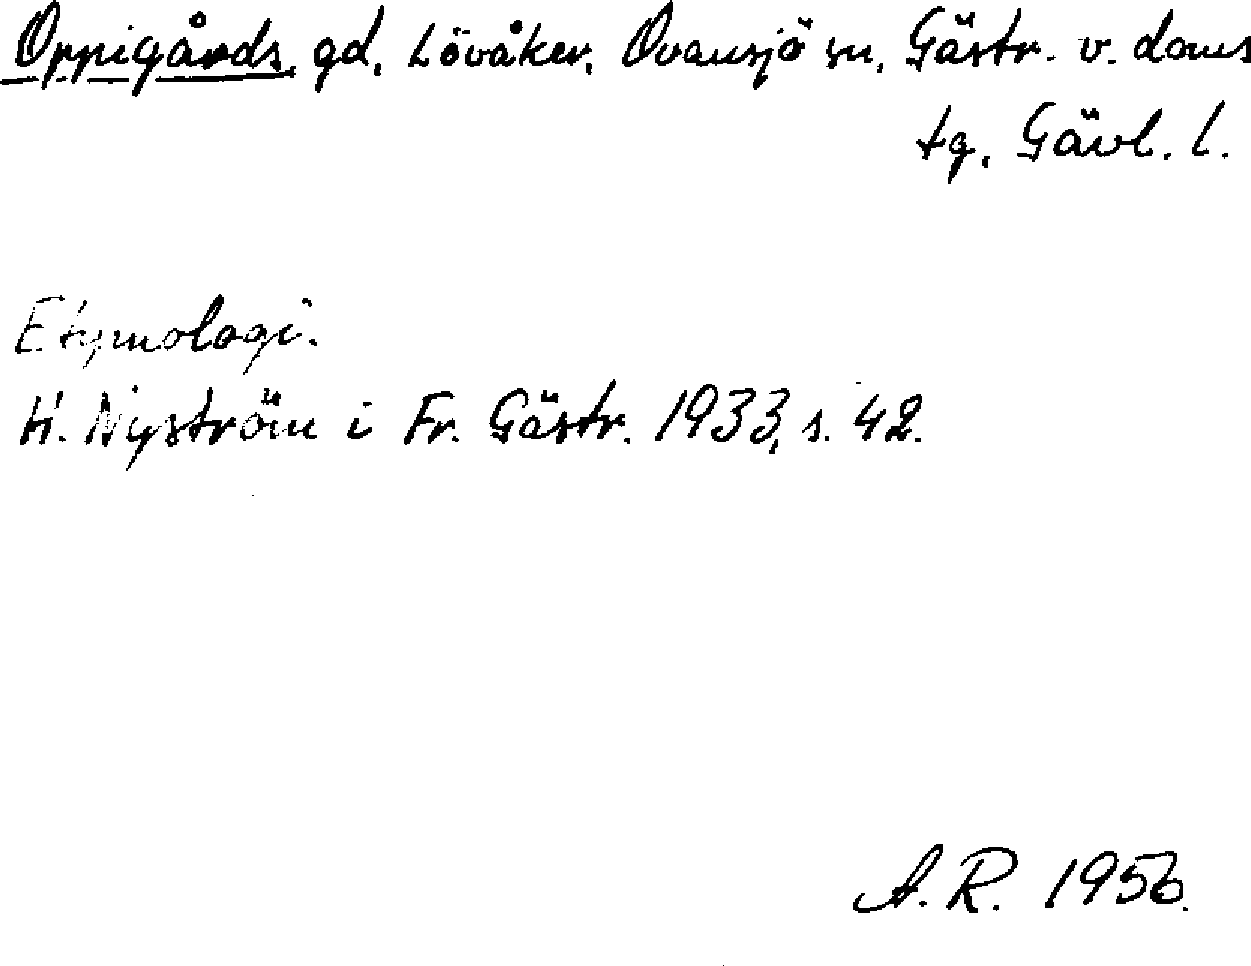 Oppigårds, gd, Lövåker, Ovansjö sn, Gästr. v. doms
tg, Gävl. l.
Etymologi.
H. Nyström i Fr. Gästr. 1933, s. 42.
A.R. 1956.